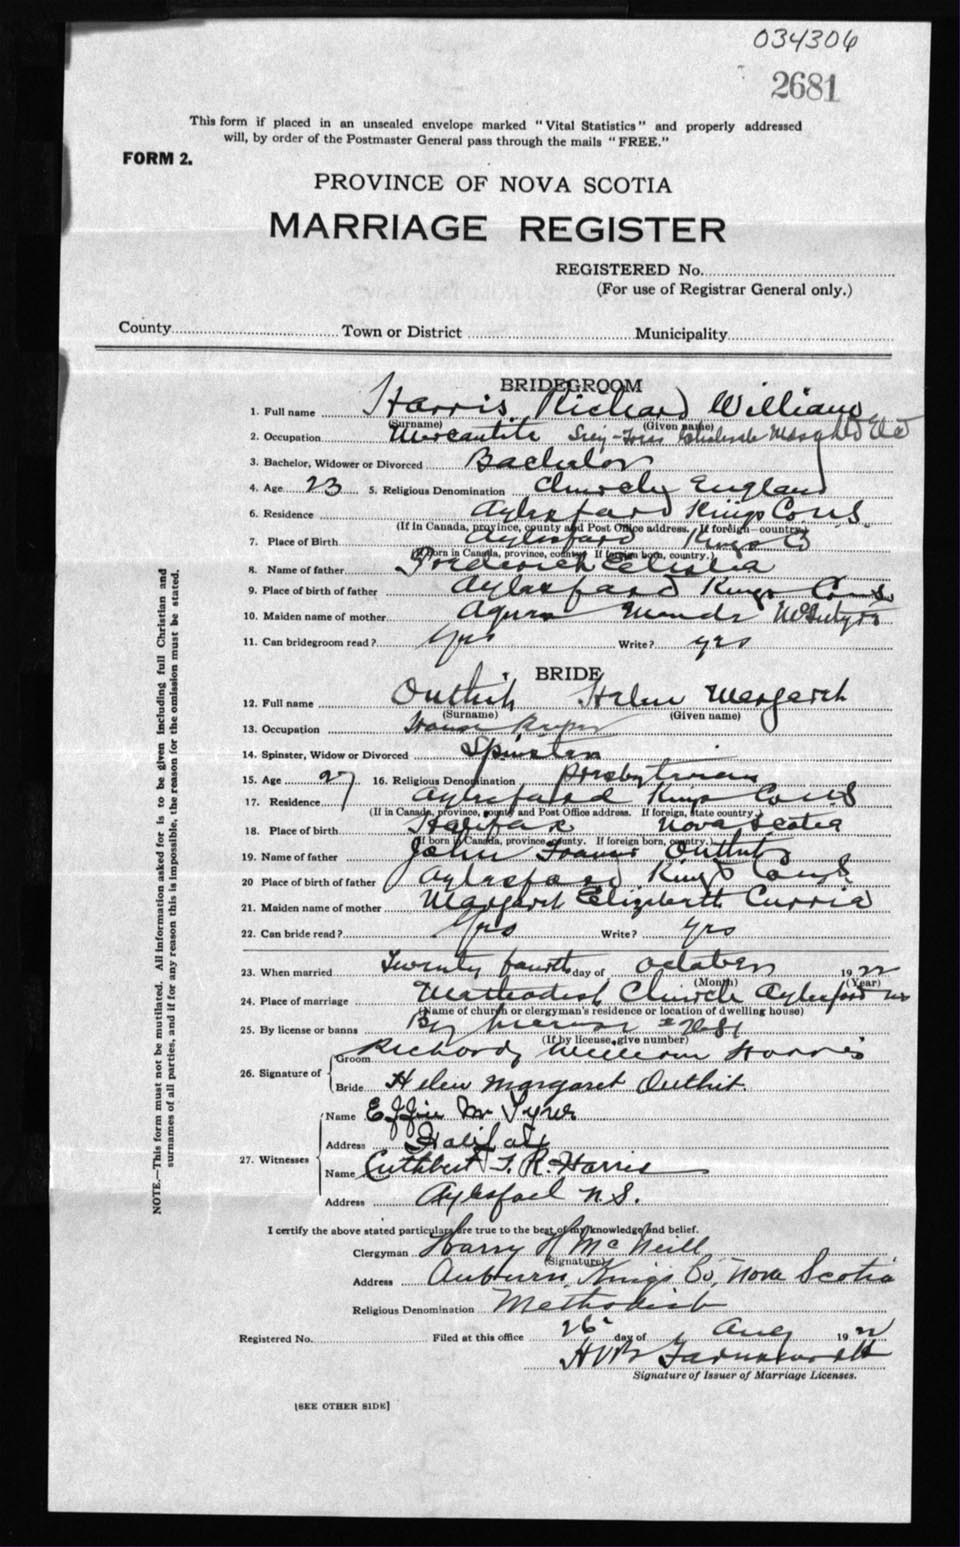 034306
2681
This form if placed in an unsealed envelope marked "Vital Statistics" and properly addressed
will, by order of the Postmaster General pass through the mails "FREE."
FORM 2.
PROVINCE OF NOVA SCOTIA
MARRIAGE REGISTER
REGISTERED No.
(For use of Registrar General only.)
County Town or District Municipality
BRIDEGROOM
1. Full name Harris Richard William
(Surname) (Given name)
2. Occupation Mercantile
3. Bachelor, Widower or Divorced Bachelor
4. Age 23 5. Religious Denomination Church England
6. Residence Aylesford Kings Co NS
(If in Canada, province, county and Post Office address. If foreign—country.)
7. Place of Birth Aylesford Kings Co
(If born in Canada, province, county. If foreign born, country.)
8. Name of father Frederick
9. Place of birth of father Aylesford Kings Co NS
10. Maiden name of mother Maude
11. Can bridegroom read? Yes Write? yes
BRIDE
12. Full name Outhit Helen Margaret
(Surname) (Given name)
13. Occupation House Keeper
14. Spinster, Widow or Divorced Spinster
15. Age 27 16. Religious Denomination Presbyterian
17. Residence Aylesford Kings Co NS
(If in Canada, province, county and Post Office address. If foreign, state country.)
18. Place of birth Halifax Nova Scotia
(If born in Canada, province, county. If foreign born, country.)
19. Name of father John Outhit
20 Place of birth of father Aylesford Kings Co NS
21. Maiden name of mother Margaret Elizabeth Currie
22. Can bride read? Yes Write? yes
23. When married Twenty fourth day of October 1922
(Month) (Year)
24. Place of marriage Methodist Church Aylesford NS
(Name of church or clergyman's residence or location of dwelling house)
25. By license or banns By license # 2681
(If by license, give number)
26. Signature of
Groom Richard William Harris
Bride Helen Margaret Outhit.
27. Witnesses
Name Effie M
Address Halifax
Name Cuthbert T. R. Harris
Address Aylesford N.S.
I certify the above stated particulars are true to the best of my knowledge and belief.
Clergyman Harry H McNeill
(Signature)
Address Auburn, Kings Co, Nova Scotia
Religious Denomination Methodist
Registered No. Filed at this office 26 day of Aug 1922
Signature of Issuer of Marriage Licenses.
[SEE OTHER SIDE]
NOTE.—This form must not be mutilated. All information asked for is to be given including full Christian and
surnames of all parties, and if for any reason this is impossible, the reason for the omission must be stated.